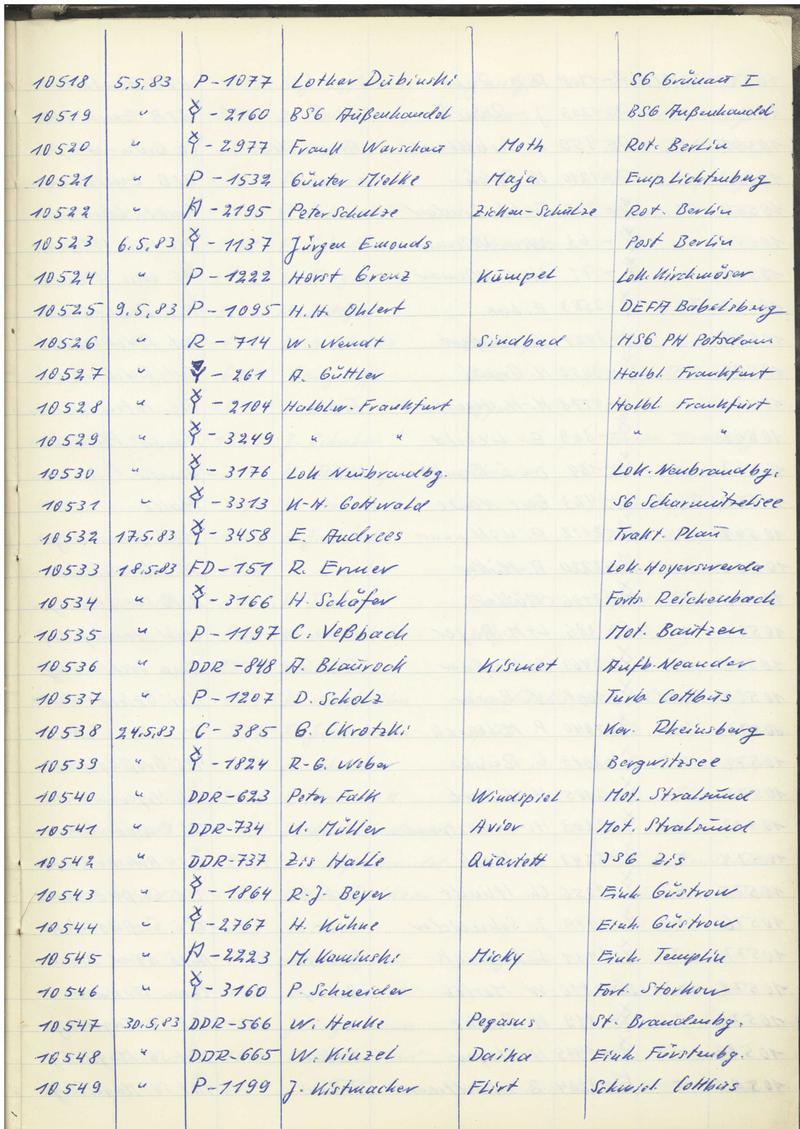 10518 5.5.83 P-1077 Lothar Dubinski SG Grünau I
10519 " -2160 BSG Außenhandel BSG Außenhandel
10520 " -2977 Frank Warschau Moth Rot. Berlin
10521 " P-1532 Günter Mielke Maja Emp. Lichtenberg
10522 " -2195 Peter Schulze Zicken-Schulze Rot. Berlin
10523 6.5.83 -1137 Jürgen Emonds Post Berlin
10524 " P-1222 Horst Grenz Kumpel Lok. Kirchmöser
10525 9.5.83 P-1095 H.H. Ohlert DEFA Babelsberg
10526 " R-714 W. Wendt Sindbad HSG PH Potsdam
10527 " -261 A. Güttler Halbl. Frankfurt
10528 " -2104 Halblw. Frankfurt Halbl. Frankfurt
10529 " -3249 " " " "
10530 " -3176 Lok Neubrandbg. Lok. Neubrandbg.
10531 " -3313 K-H. Gottwald SG Scharmützelsee
10532 17.5.83 -3458 E. Andrees Trakt. Plau
10533 18.5.83 FD-151 R. Ermer Lok. Hoyerswerda
10534 " -3166 H. Schäfer Forts. Reichenbach
10535 " P-1197 C. Veßbach Mot. Bautzen
10536 " DDR-848 A. Blaurock Kismet Aufb. Neander
10537 " P-1207 D. Scholz Turb. Cottbus
10538 24.5.83 C-385 G. Ckrotzki Ker. Rheinsberg
10539 " -1824 R-G. Weber Bergwitzsee
10540 " DDR-623 Peter Falk Windspiel Mot. Stralsund
10541 " DDR-734 U. Müller Avior Mot. Stralsund
10542 " DDR-737 Zis Halle Quartett JSG Zis
10543 " -1864 R-J. Beyer Einh. Güstrow
10544 " -2767 H. Kühne Einh. Güstrow
10545 " -2223 M. Kaminski Micky Einh. Templin
10546 " -3160 P. Schneider Fort. Storkow
10547 30.5.83 DDR-566 W. Henke Pegasus St. Brandenbg.
10548 " DDR-665 W. Kinzel Daika Einh. Fürstenbg.
10549 " P-1199 J. Kistmacher Flirt Schwiel. Cottbus